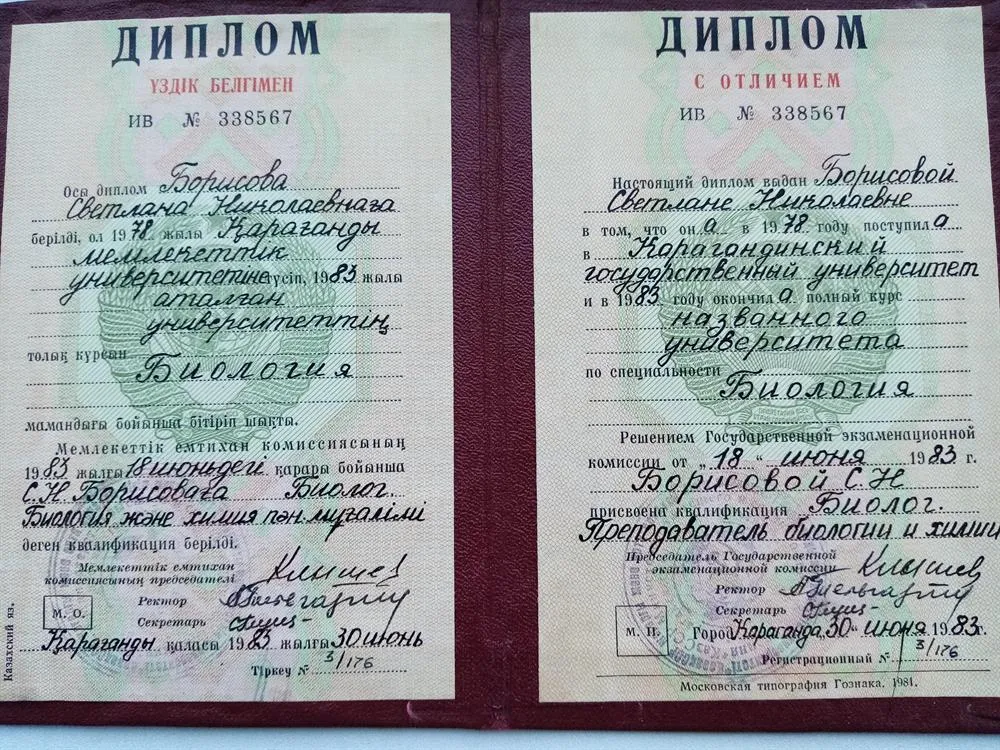 ДИПЛОМ
ҮЗДІК БЕЛГІМЕН
ИВ № 338567
Осы диплом Борисова
Светлана Николаевнаға
берілді, ол 1978 жылы Қарағанды
мемлекеттік
университетіне түсіп, 1983 жылы
аталған
университеттің
толық курсын
Биология
мамандығы бойынша бітіріп шықты.
Мемлекеттік емтихан комиссиясының
1983 жылғы 18 июньдегі қарары бойынша
С.Н Борисоваға Биолог.
Биология және химия пән. мұғалімі
деген квалификация берілді.
Мемлекеттік емтихан
комиссиясының председателі
Ректор
Секретарь
М. О.
Қарағанды қаласы 1983 жылғы 30 июнь
Тіркеу № 3/176
Казахский яз.
ДИПЛОМ
С ОТЛИЧИЕМ
ИВ № 338567
Настоящий диплом выдан Борисовой
Светлане Николаевне
в том, что он а в 1978 году поступил а
в Карагандинский
государственный университет
и в 1983 году окончил а полный курс
названного
университета
по специальности
Биология
Решением Государственной экзаменационной
комиссии от „ 18 “ июня 1983 г.
Борисовой С.Н
присвоена квалификация Биолог.
Преподаватель биологии и химии
Председатель Государственной
экзаменационной комиссии
Ректор
Секретарь
М. П.
Город Караганда, 30 " июня 1983г.
Регистрационный № 3/176
Московская типография Гознака. 1981.